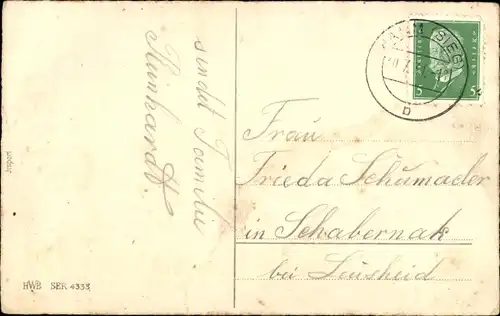 sendet Familie
Reinhardt.
Frau
Frieda Schumacher
in Schabernak
bei Leuscheid
(SIEG)
b
5 5
HWB SER 4333